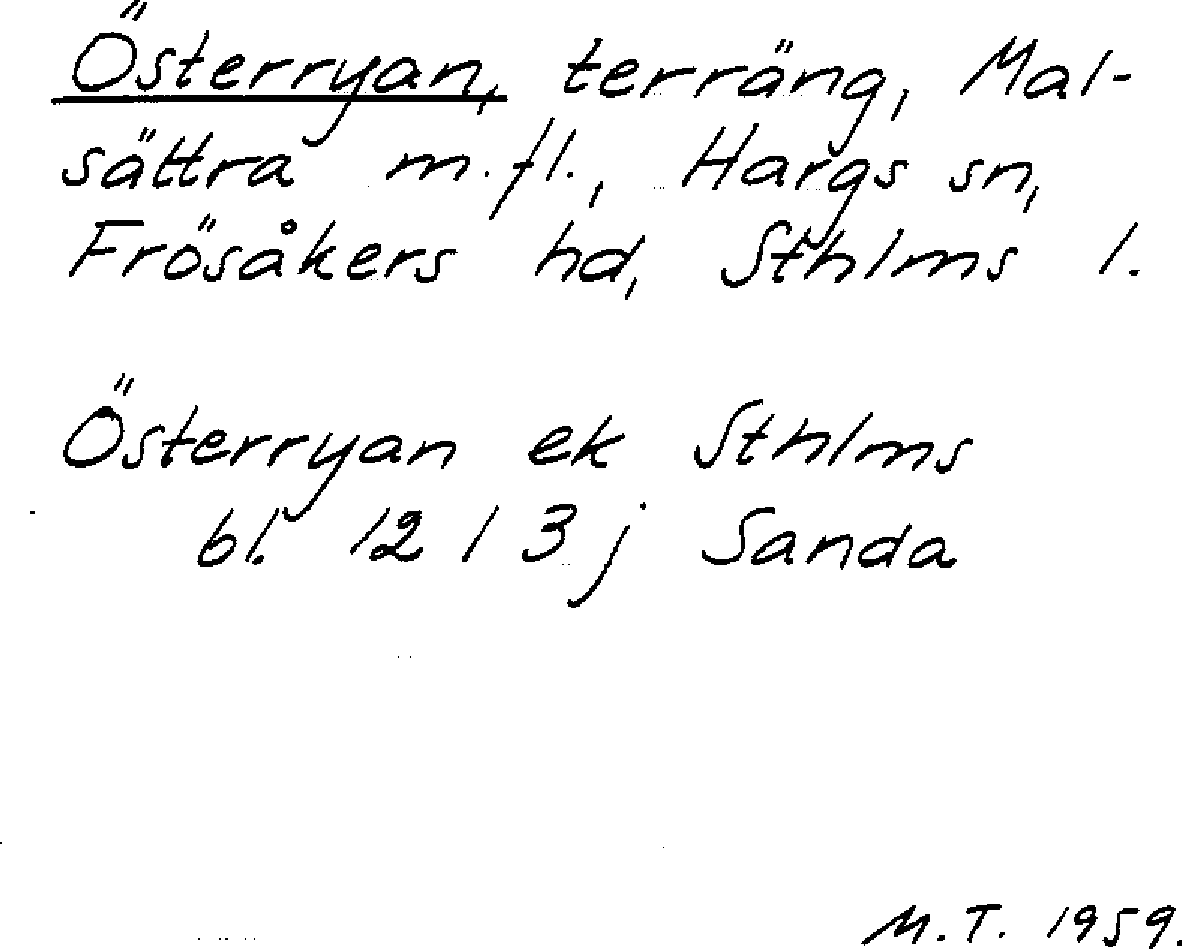 Österryan, terräng, Mal-
sättra m.fl., Hargs sn,
Frösåkers hd, Sthlms l.
Österryan ek Sthlms
bl. 12 I 3 j Sanda
M.T. 1959.